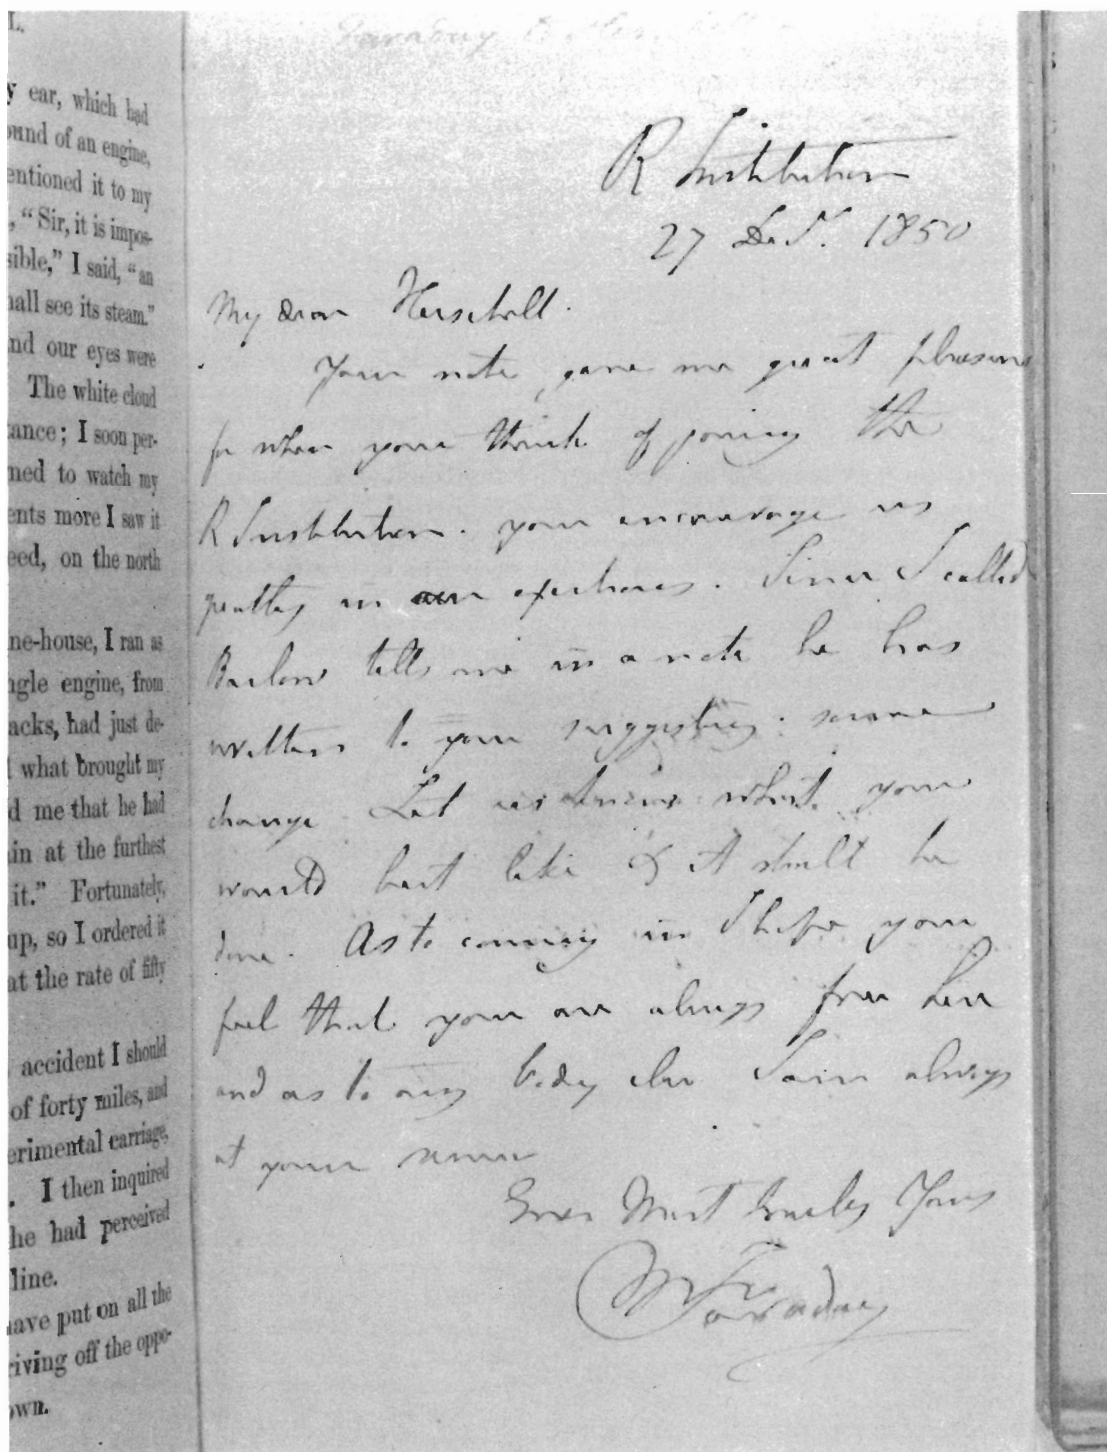 L.
y ear, which had
ound of an engine,
entioned it to my
, “Sir, it is impos-
sible,” I said, “an
hall see its steam.”
nd our eyes were
The white cloud
tance; I soon per-
ned to watch my
ents more I saw it
eed, on the north
ne-house, I ran as
ngle engine, from
acks, had just de-
what brought my
d me that he had
in at the furthest
it.” Fortunately,
up, so I ordered it
at the rate of fifty
accident I should
of forty miles, and
erimental carriage,
. I then inquired
he had perceived
line.
have put on all the
riving off the oppo-
own.
Faraday to
R Institution
27 Decr. 1850
My dear Herschell.
Your note gave me great pleasure
for when you think of joining the
R Institution. you encourage us
greatly in our exertions. Since I called
Barlow tells me in a note he has
written to you suggesting some
change. Let us know what you
would best like & it shall be
done. As to coming in I hope you
feel that you are always free here
and as to any body else I am always
at your service
Ever Most Truly Yours
M Faraday